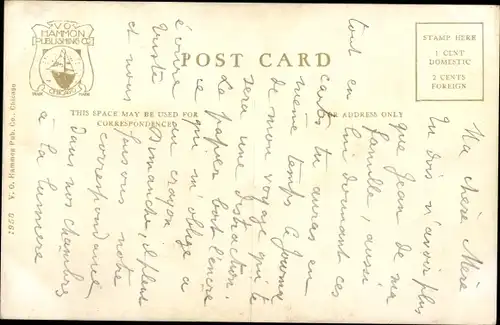 V.O. HAMMON PUBLISHING CO.
CHICAGO
POST CARD
STAMP HERE
1 CENT DOMESTIC
2 CENTS FOREIGN
THIS SPACE MAY BE USED FOR CORRESPONDENCE
ADDRESS ONLY
V. O. Hammon Pub. Co., Chicago
Ma chère Mère
Tu dois n'avoir plus
que Jean de ma
famille, aussi
tout en lui donnant ces
cartes tu auras en
même temps le journal
de mon voyage qui te
sera une distraction.
Le papier boit l'encre
ce qui m'oblige à
écrire au crayon
Triste Dimanche, il pleut
et nous faisons notre
correspondance
dans nos chambres
à la lumière